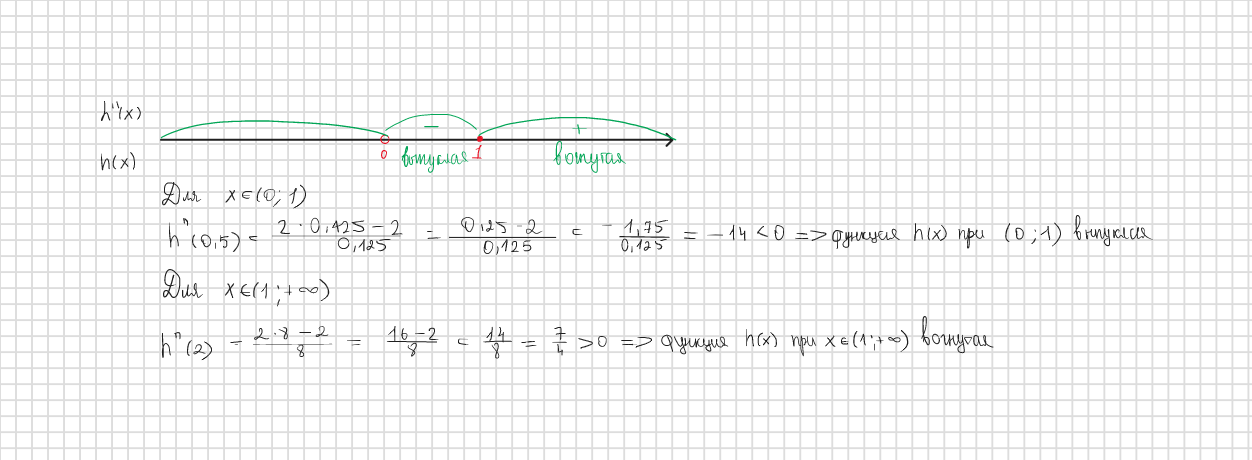 h''(x)
− +
0 выпуклая 1 вогнутая
h(x)
Для x∈(0; 1)
h''(0,5) = 2 · 0,125 − 2 / 0,125 = 0,25 − 2 / 0,125 = − 1,75 / 0,125 = − 14 < 0 => функция h(x) при (0 ; 1) выпуклая
Для x∈(1 ; + ∞)
h''(2) = 2 · 8 − 2 / 8 = 16 − 2 / 8 = 14 / 8 = 7 / 4 > 0 => функция h(x) при x∈(1 ; + ∞) вогнутая